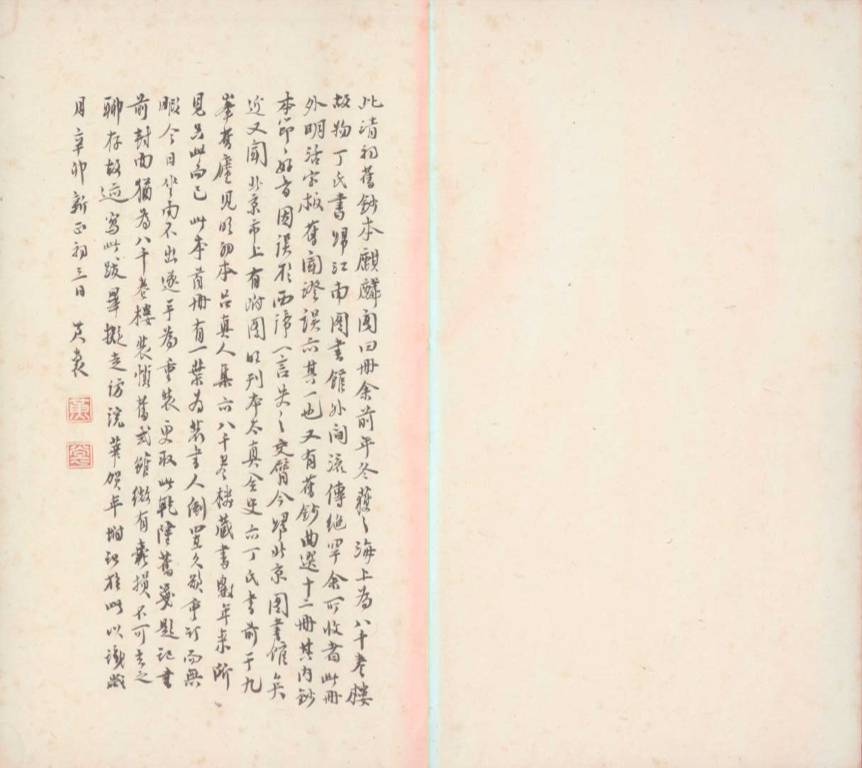 此清初舊鈔本麒麟閣四冊余前年冬獲之海上為八千卷樓
故物丁氏書歸江南圖書館外間流傳絕罕余所收者此冊
外明活字板舊聞證誤亦其一也又有舊鈔曲選十二冊其內鈔
本節節好音因誤於西諦一言失之交臂今歸北京圖書館矣
近又聞北京市上有附圖明刊本太真全史亦丁氏書前于九
峯舊廬見明初本呂真人集亦八千卷樓藏書數年來所
見只此而已此本首冊有一葉為裝書人倒置久欲重訂而無
暇今日坐雨不出遂手為重裝更取此乾隆舊箋題記書
前封面猶為八千卷樓裝幀舊式雖微有蠹損不可去之
聊存故迹寫此跋畢擬走訪浣華賀年附記於此以識歲
月辛卯新正初三日 黃裳
黃
裳